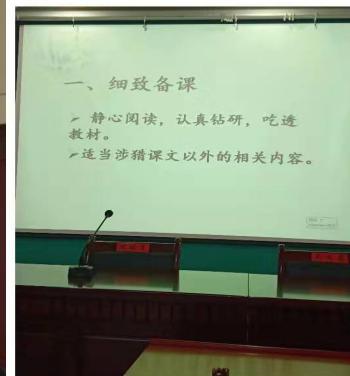 一、细致备课
➢ 静心阅读，认真钻研，吃透
教材。
➢适当涉猎课文以外的相关内容。